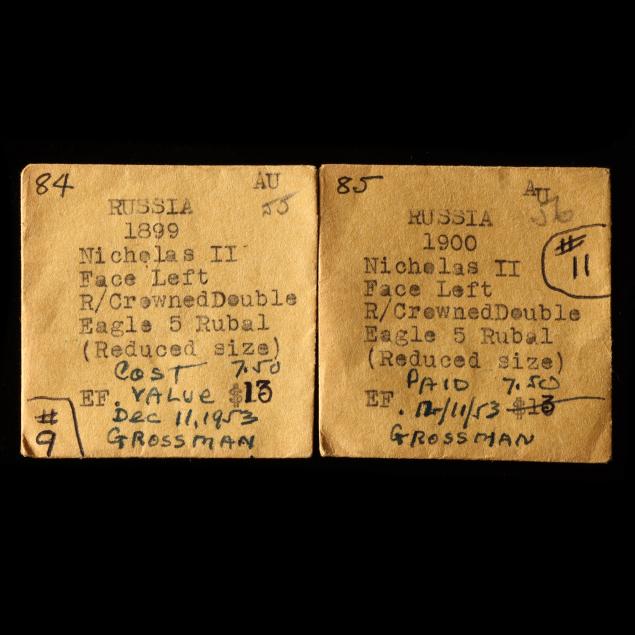 84 AU
55
RUSSIA
1899
Nicholas II
Face Left
R/CrownedDouble
Eagle 5 Rubal
(Reduced size)
COST 7.50
EF. VALUE $13
DEC 11, 1953
GROSSMAN
#
9
85 AU
RUSSIA
1900
#
11
Nicholas II
Face Left
R/CrownedDouble
Eagle 5 Rubal
(Reduced size)
PAID 7.50
EF. 12/11/53 $13
GROSSMAN